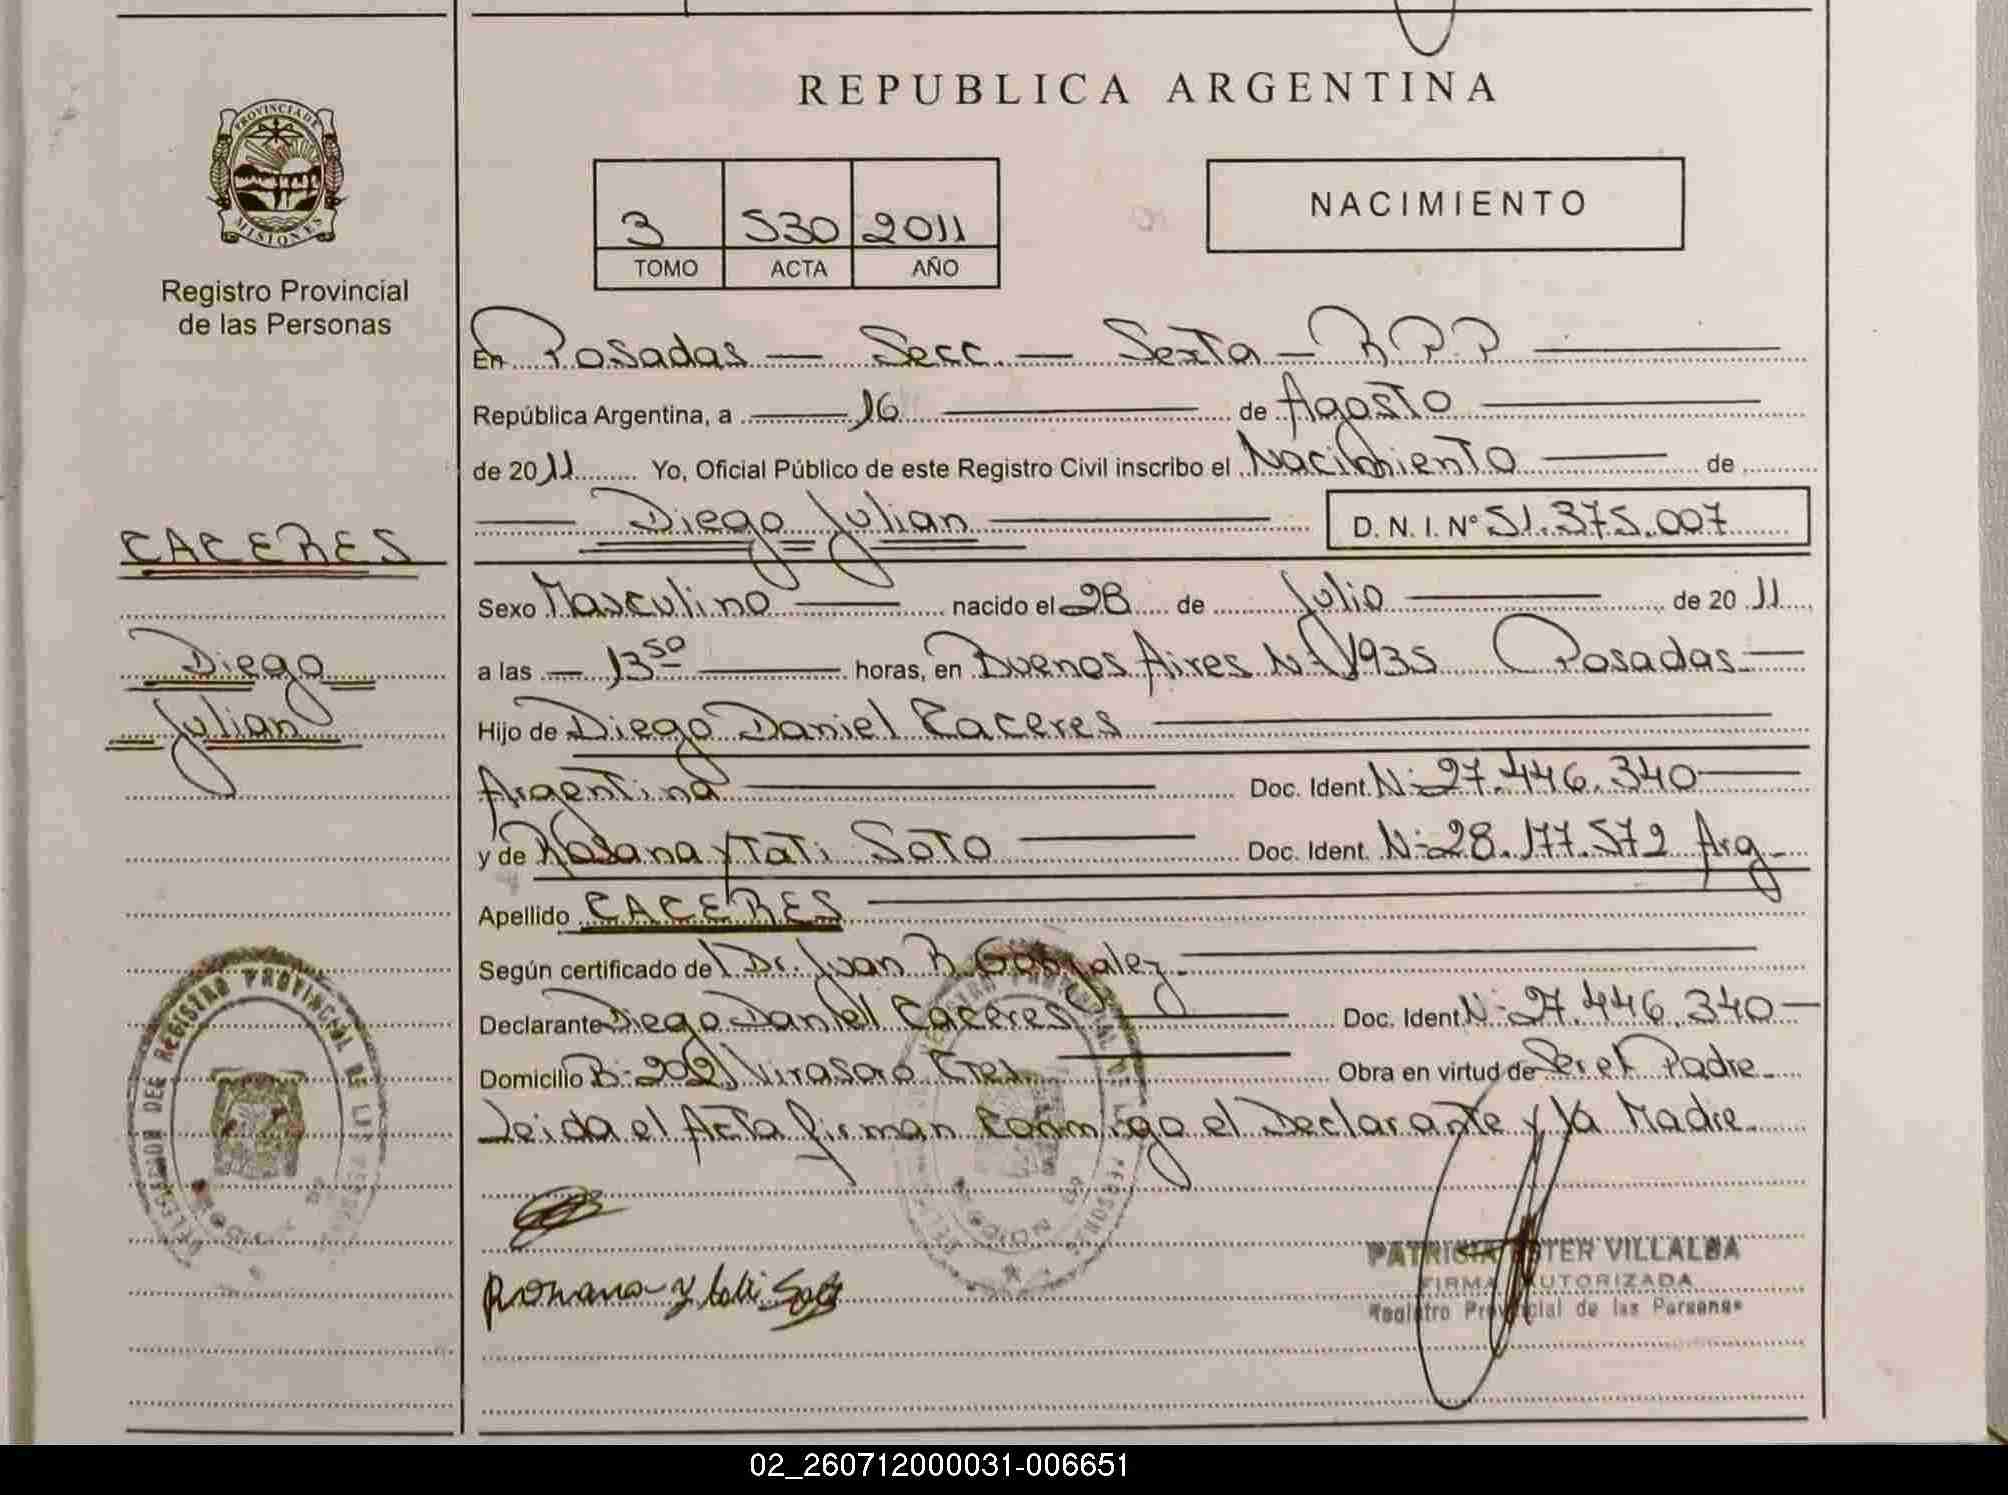 REPUBLICA ARGENTINA
PROVINCIA DE
MISIONES
Registro Provincial
de las Personas
3 530 2011
TOMO ACTA AÑO
NACIMIENTO
En Posadas — Secc. — Sexta — R.P.P
República Argentina, a 16 de Agosto
de 2011 Yo, Oficial Público de este Registro Civil inscribo el Nacimiento de
Diego Julian D. N. I. Nº 51.375.007
CACERES
Diego
Julian
Sexo Masculino nacido el 28 de Julio de 2011
a las 13 50 horas, en Buenos Aires Nº 1935 Posadas
Hijo de Diego Daniel Caceres
Argentina Doc. Ident. Nº 27.446.340
y de Rosana ytati Soto Doc. Ident. Nº 28.177.572 Arg
Apellido CACERES
Según certificado del Dr. Juan R. Gonzalez
Declarante Diego Daniel Caceres Doc. Ident. Nº 27.446.340
Domicilio Bº 202 Virasoro Ctes Obra en virtud de Ser el Padre
Leida el Acta firman Conmigo el Declarante y la Madre
Rosana Ytati Soto
DELEGACION DEL REGISTRO PROVINCIAL DE LAS
REGISTRO PROVINCIAL
PATRICIA ESTER VILLALBA
FIRMA AUTORIZADA
Registro Provincial de las Personas
02_260712000031-006651